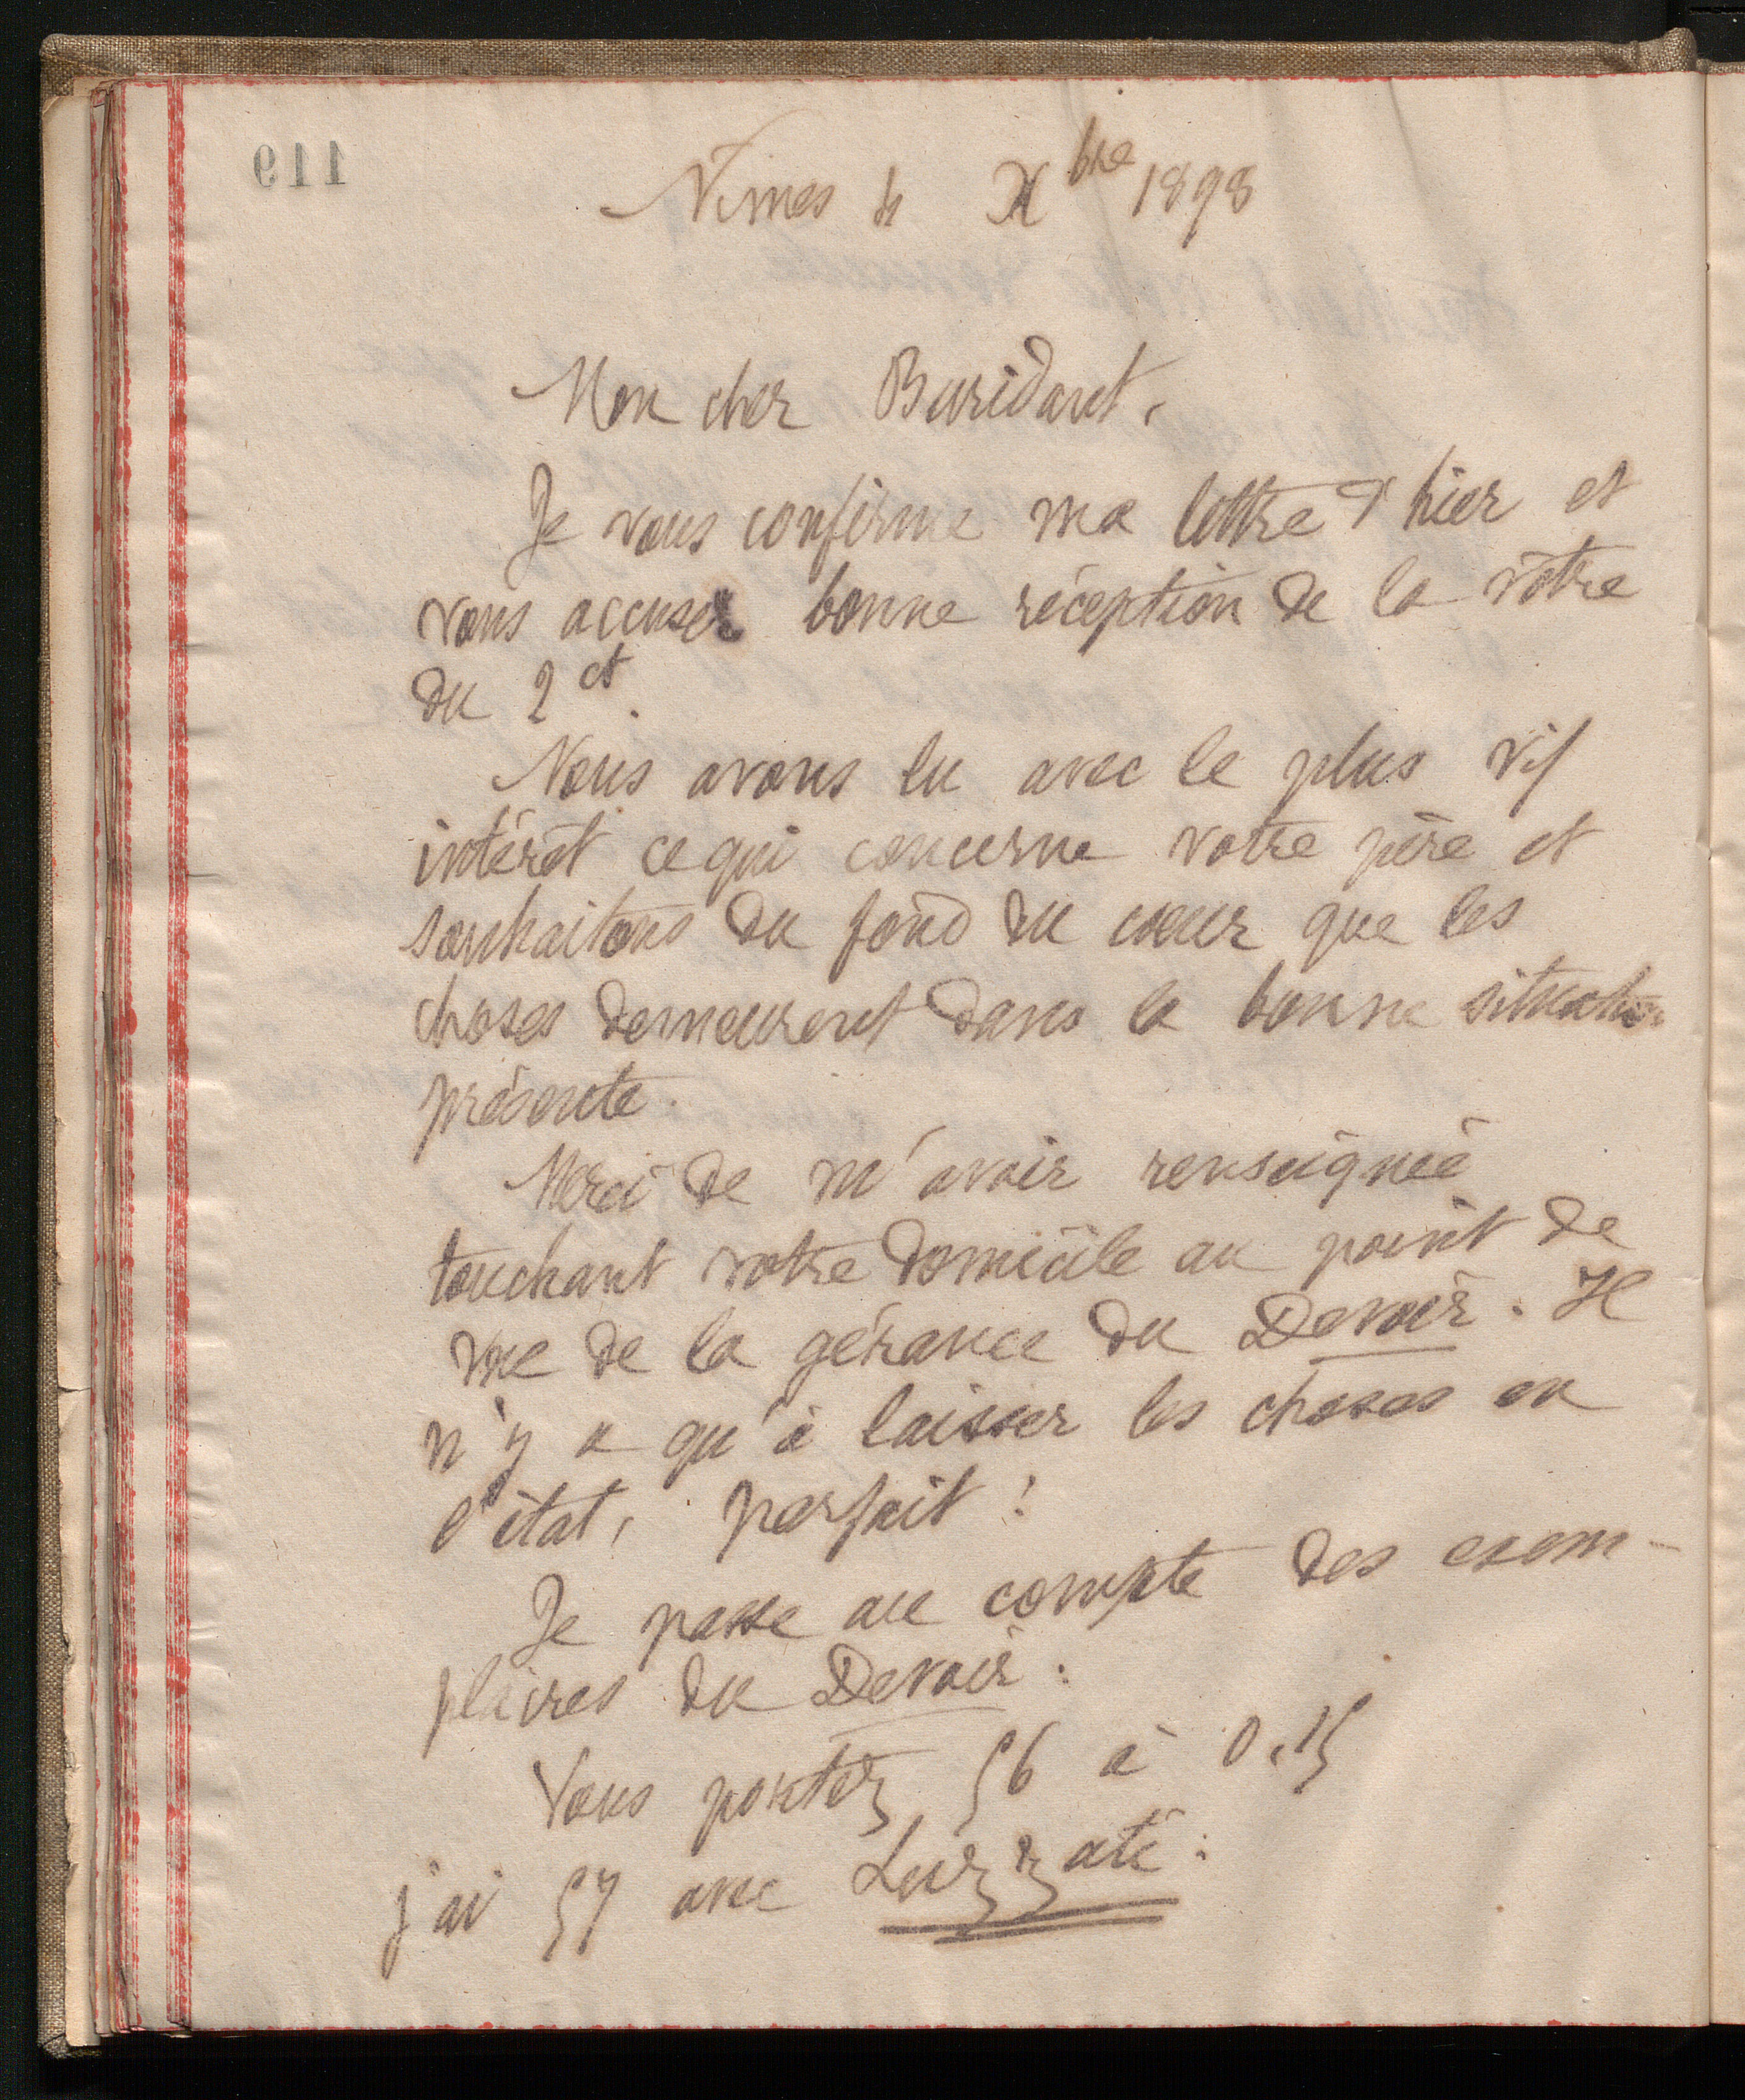 119
Nimes 4 Xbre 1898
Mon cher Buridant,
Je vous confirme ma lettre d'hier et
vous accuse bonne réception de la vôtre
du 2 ct.
Nous avons lu avec le plus vif
intérêt ce qui concerne votre père et
souhaitons du fond du coeur que les
choses demeurent dans la bonne situation
présente.
Merci de m'avoir renseignée
touchant votre domicile au point de
vue de la gérance du Devoir. Il
n'y a qu'à laisser les choses en
l'état, parfait !
Je passe au compte des exem-
plaires du Devoir :
Vous portez 56 à 0,15
j'ai 57 avec Luzzati :